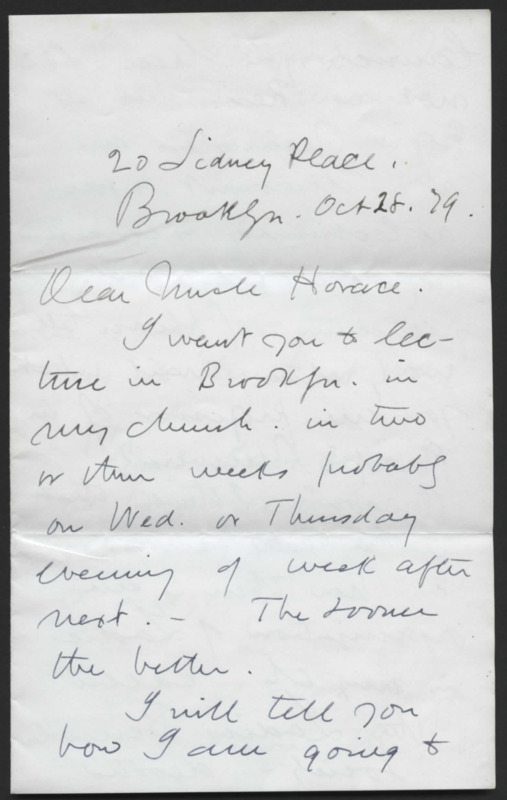 20 Sidney Place.
Brooklyn. Oct 28. 79.
Dear Uncle Horace.
I want you to lec-
ture in Brooklyn. in
my church. in two
or three weeks probably
on Wed. or Thursday
evening of week after
next. - The sooner
the better.
I will tell you
how I am going to